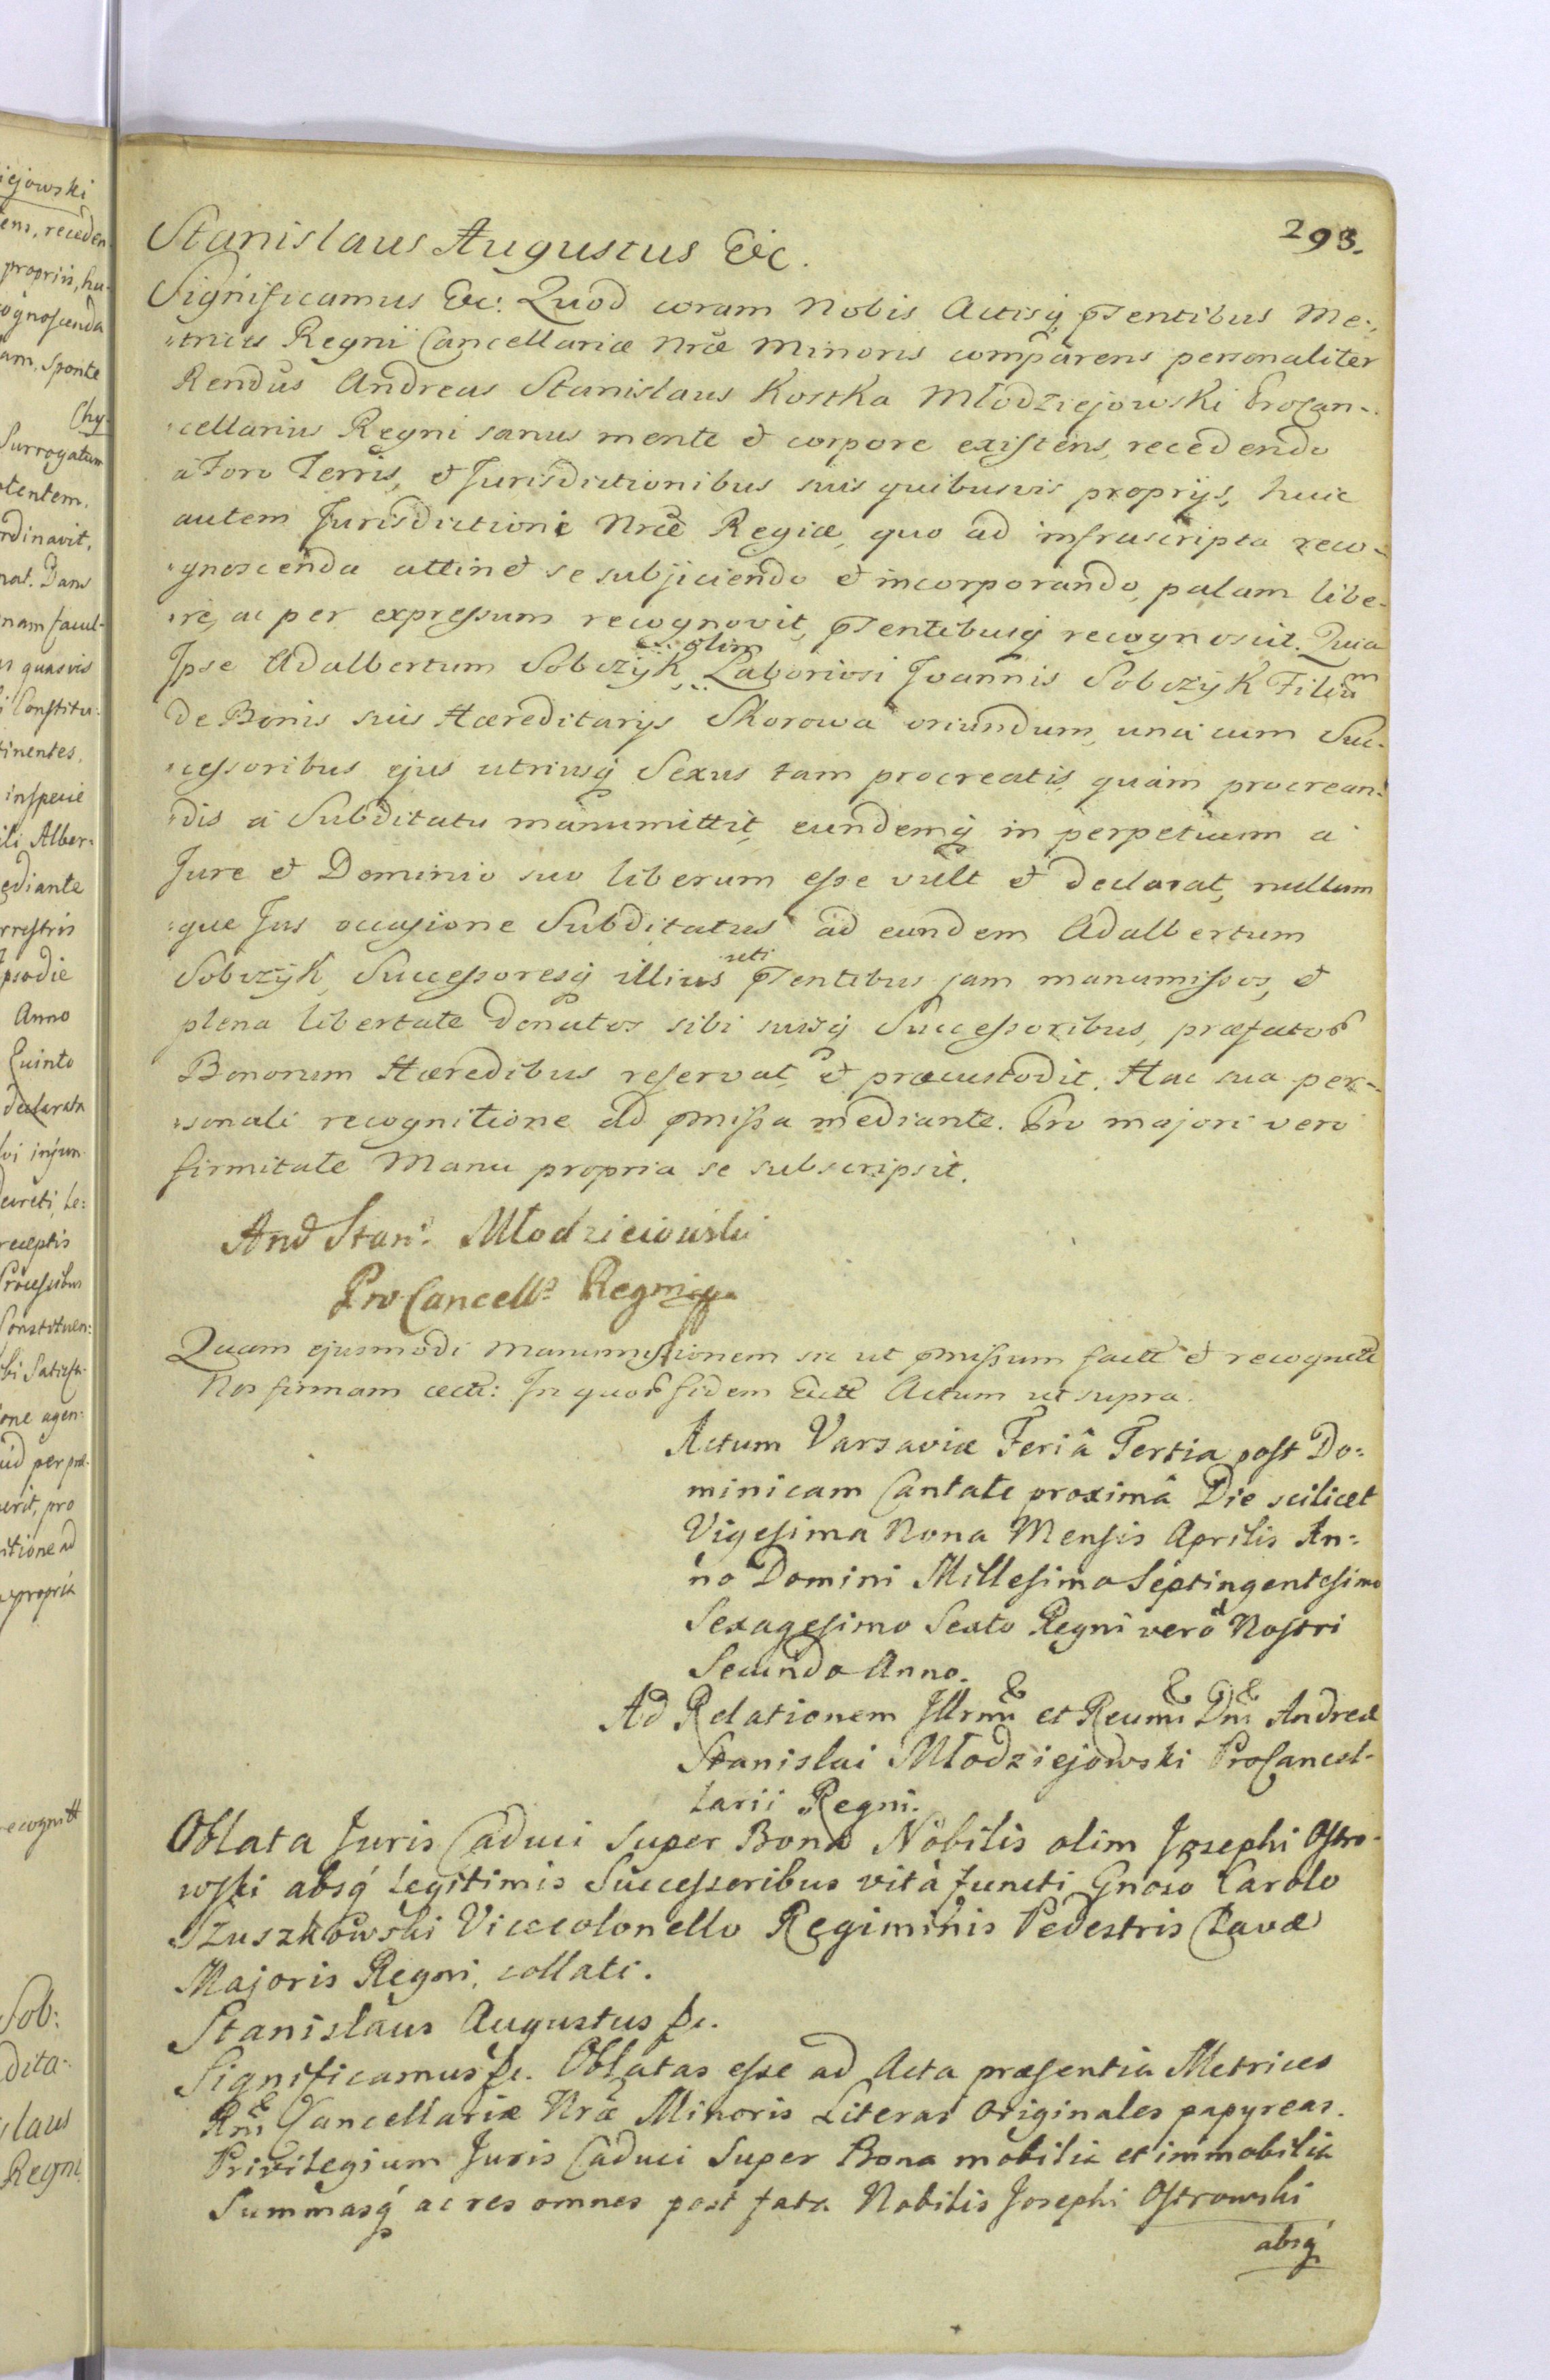 293.
Stanislaus Augustus Etc.
Significamus Etc: Quod coram Nobis Actisq̨ P̃sentibus Me-
tricis Regni Cancellariæ Nr̃æ Minoris comparens personaliter
Rendus Andreas Stanislaus Kostka Młodziejowski Procan-
cellarius Regni sanus mente et corpore existens, recedendo
à Foro Terris, et Jurisdictionibus suis quibusvis proprijs, huic
autem Jurisdictioni Nr̃æ Regiæ, quo ad infrascripta reco-
gnoscenda attinet se subjiciendo et incorporando, palam libe-
re, ac per expressum recognovit, P̃sentibusq̨ recognoscit. Quia
Ipse Adalbertum Sobczyk, olim Laboriosi Joannis Sobczyk Filium
de Bonis suis Hæreditarijs Skorowa oriundum, una cum Suc-
cessoribus ejus utriusq̨ Sexus tam procreatis, quàm procrean-
dis à Subditatu manumittit, eundemq̨ in perpetuum à
Jure et Dominio suo liberum esse vult et declarat, nullum
que Jus occasione Subditatus ad eundem Adalbertum
Sobczyk, Successoresq̨ illius uti P̃sentibus jam manumissos, et
plena libertate donatos sibi suisq̨ Successoribus, præfator
Bonorum Hæredibus reservat, et præcustodit. Hac sua per-
sonali recognitione ad p̃missa mediante. Pro majori vero
firmitate Manu propria se subscripsit.
And Stan: Młodzieiowski
ProCancell: Regni
Quam ejusmodi Manumissionem sic ut p̃missum factt et recognitt
Nos firmam ectt: In quor fidem Ectt Actum ut supra.
Actum Varsaviæ Feriâ Tertia post Do:
minicam Cantate proximâ Die scilicet
Vigesima Nona Mensis Aprilis An:
no Domini Millesimo Septingentesimo
Sexagesimo Sexto Regni verò Nostri
Secundo Anno.
Ad Relationem Illrmi et Reumi Dni Andreæ
Stanislai Młodziejowski ProCancel-
larii Regni.
Oblata Juris Caduci super Bona Nobilis olim Josephi Ostro-
wski absq̨ legitimis Successoribus vitâ functi Gnoso Carolo
Szuszkowski Vicecolonello Regiminis Pedestris Clavæ
Majoris Regni, collati.
Stanislaus Augustus &c.
Significamus &c. Oblatas esse ad Acta præsentia Metrices
Rni Cancellariæ Nræ Minoris Literas Originales papyreas.
Privilegium Juris Caduci Super Bona mobilia et immobilia
Summasq̨ ac res omnes post fata Nobilis Josephi Ostrowski
absq̨